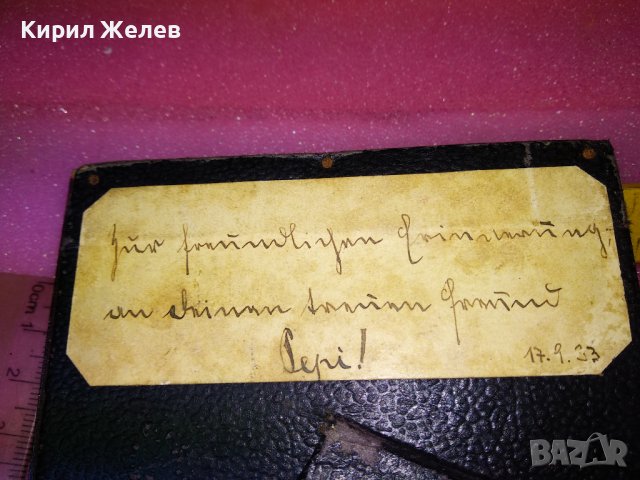 Кирил Желев
Zur freundlichen Erinnerung,
an deinen treuen Freund
Pepi!
17.9.23
10cm 1
2
BAZAR